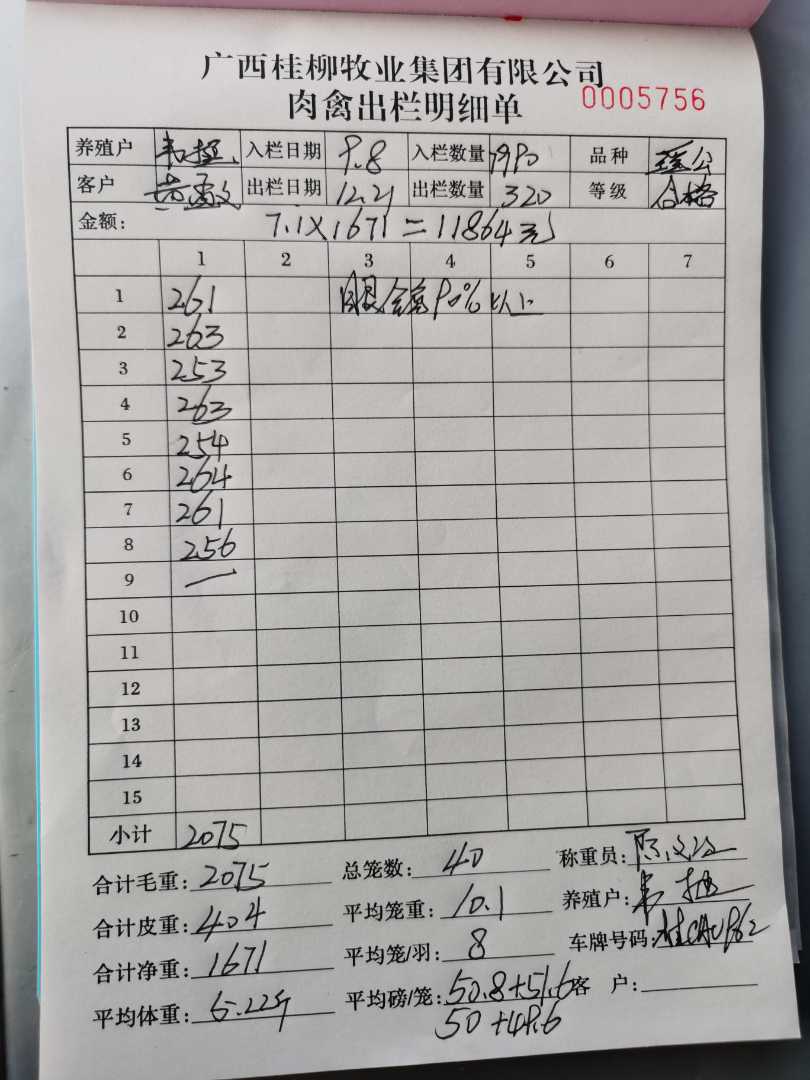 广西桂柳牧业集团有限公司
肉禽出栏明细单 0005756
养殖户 韦 入栏日期 9.8 入栏数量 1990 品种 瑶公
客户 出栏日期 12.21 出栏数量 320 等级 合格
金额: 7.1×1671=11864元
1 2 3 4 5 6 7
1 261 眼 90%以上
2 263
3 253
4 263
5 254
6 264
7 261
8 256
9 —
10
11
12
13
14
15
小计 2075
合计毛重: 2075 总笼数: 40 称重员:
合计皮重: 404 平均笼重: 10.1 养殖户: 韦
合计净重: 1671 平均笼/羽: 8 车牌号码: 桂
平均体重: 5.22斤 平均磅/笼: 50.8+51.6 客 户:
50+49.6